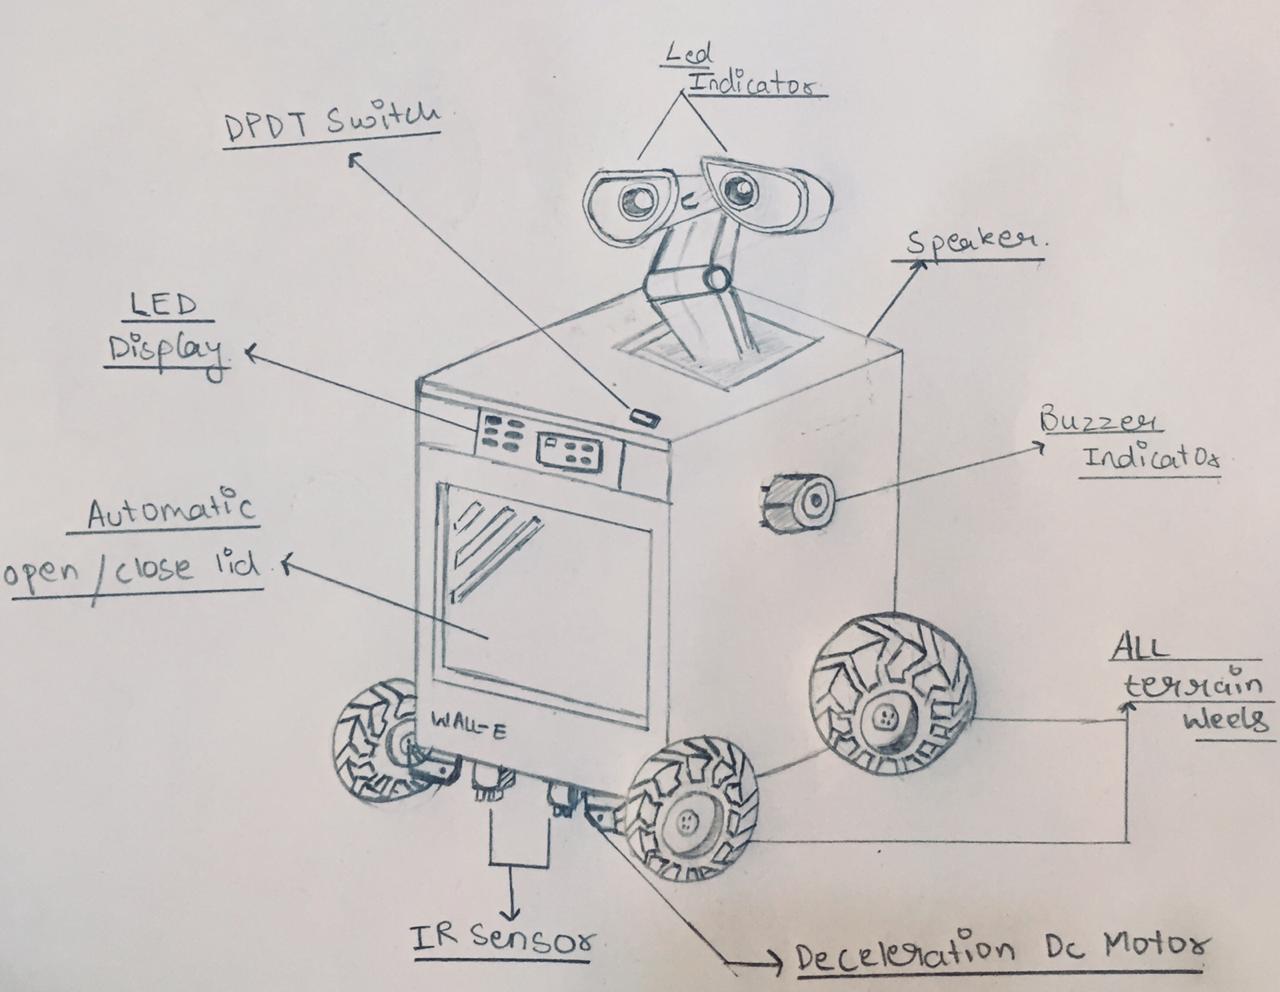 Led
Indicator
DPDT Switch
Speaker.
LED
Display
Buzzer
Indicator
Automatic
open/close lid
ALL
terrain
Weels
WALL-E
IR Sensor
Deceleration Dc Motor